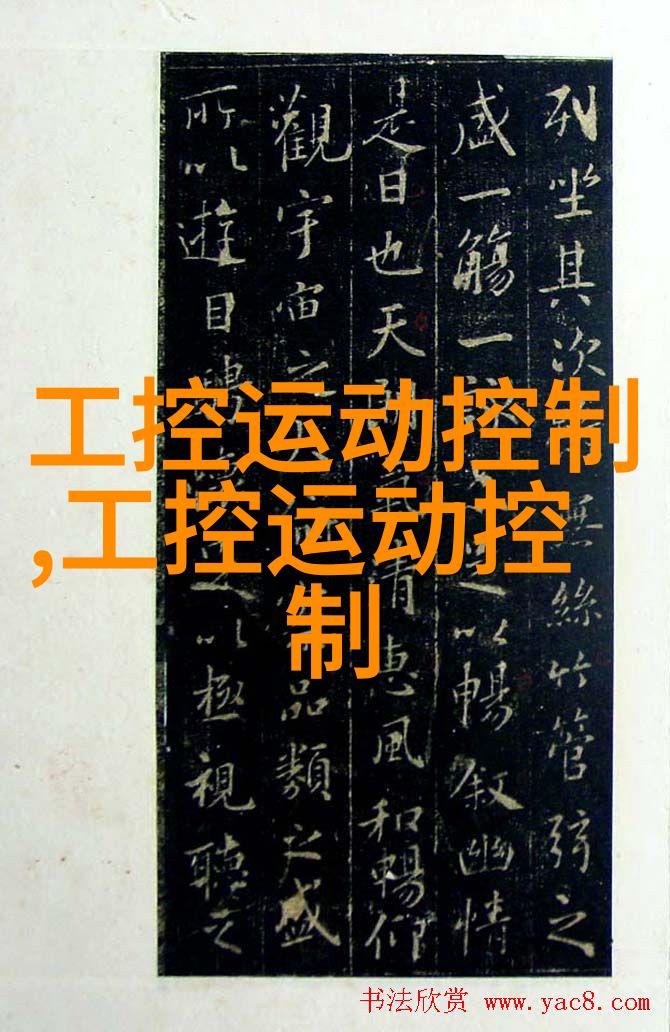 列坐其次無絲竹管弦之
盛一觴一以暢叙幽情
是日也天清惠風和暢仰
觀宇宙之大品類之盛
所以遊目騁以極視聽之
工控运动控制
,工控运动控
制
书法欣赏 www.yac8.com